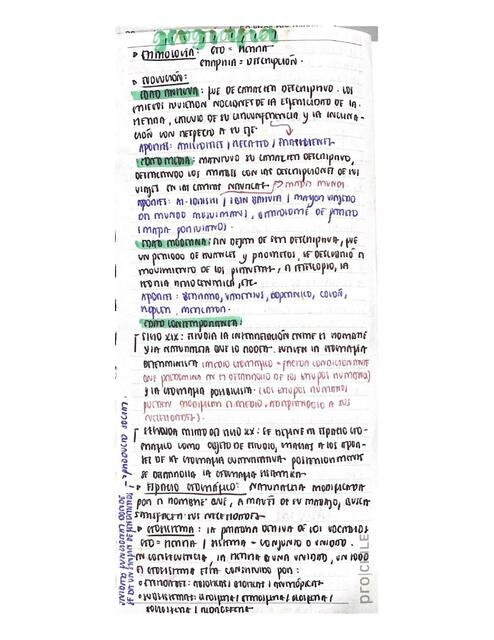 geografía
▸ ETIMOLOGÍA: GEO = TIERRA
GRAPHIA = DESCRIPCIÓN.
▸ EVOLUCIÓN:
EDAD ANTIGUA: FUE DE CARÁCTER DESCRIPTIVO. LOS
GRIEGOS TUVIERON NOCIONES DE LA ESFERICIDAD DE LA
TIERRA, CÁLCULO DE SU CIRCUNFERENCIA Y LA INCLINA-
CIÓN CON RESPECTO A SU EJE
APORTES: / HECATEO / ERATÓSTENES
EDAD MEDIA: MANTUVO SU CARÁCTER DESCRIPTIVO,
DESTACANDO LOS MAPAS CON LAS DESCRIPCIONES DE SUS
VIAJES EN LAS CARTAS NÁUTICAS → MAPA MUNDI
APORTES: AL-IDRISI / IBN BATTUTA / MAYOR VIAJERO
DEL MUNDO MUSULMÁN), BARTOLOMÉ DE PARETO
(MAPA PORTULANO).
EDAD MODERNA: SIN DEJAR DE SER DESCRIPTIVA, FUE
UN PERIODO DE AVANCES Y PROGRESOS, SE DESCUBRIÓ EL
MOVIMIENTO DE LOS PLANETAS, EL TELESCOPIO, LA
TEORÍA HELIOCÉNTRICA, ETC.
APORTES: VARENIUS, COPÉRNICO, COLÓN,
KEPLER, MERCATOR.
EDAD CONTEMPORÁNEA:
SIGLO XIX: ESTUDIA LA INTERRELACIÓN ENTRE EL HOMBRE
Y LA NATURALEZA QUE LO RODEA. SURGEN LA GEOGRAFÍA
DETERMINISTA (MEDIO GEOGRÁFICO = FACTOR CONDICIONANTE
QUE PREDOMINA EN EL DESARROLLO DE LOS GRUPOS HUMANOS)
Y LA GEOGRAFÍA POSIBILISTA. (LOS GRUPOS HUMANOS
PUEDEN MODIFICAR EL MEDIO, ADAPTÁNDOLO A SUS
NECESIDADES).
SEGUNDA MITAD DEL SIGLO XX: SE DEFINE EL ESPACIO GEO-
GRÁFICO COMO OBJETO DE ESTUDIO, GRACIAS A LOS APOR-
TES DE LA GEOGRAFÍA CUANTITATIVA. POSTERIORMENTE
SE DESARROLLA LA GEOGRAFÍA SISTÉMICA
▸ ESPACIO GEOGRÁFICO: NATURALEZA MODIFICADA
POR EL HOMBRE QUE, A TRAVÉS DE SU TRABAJO, BUSCA
SATISFACER SUS NECESIDADES
▸ GEOSISTEMA: LA PALABRA DERIVA DE LOS VOCABLOS
GEO = TIERRA / SISTEMA = CONJUNTO O UNIDAD.
EN CONSECUENCIA, LA TIERRA ES UNA UNIDAD, UN TODO
EL GEOSISTEMA ESTÁ CONSTITUIDO POR:
• ELEMENTOS: ABIÓTICAS / BIÓTICAS / ANTRÓPICAS
• SUBSISTEMAS:
proCELES